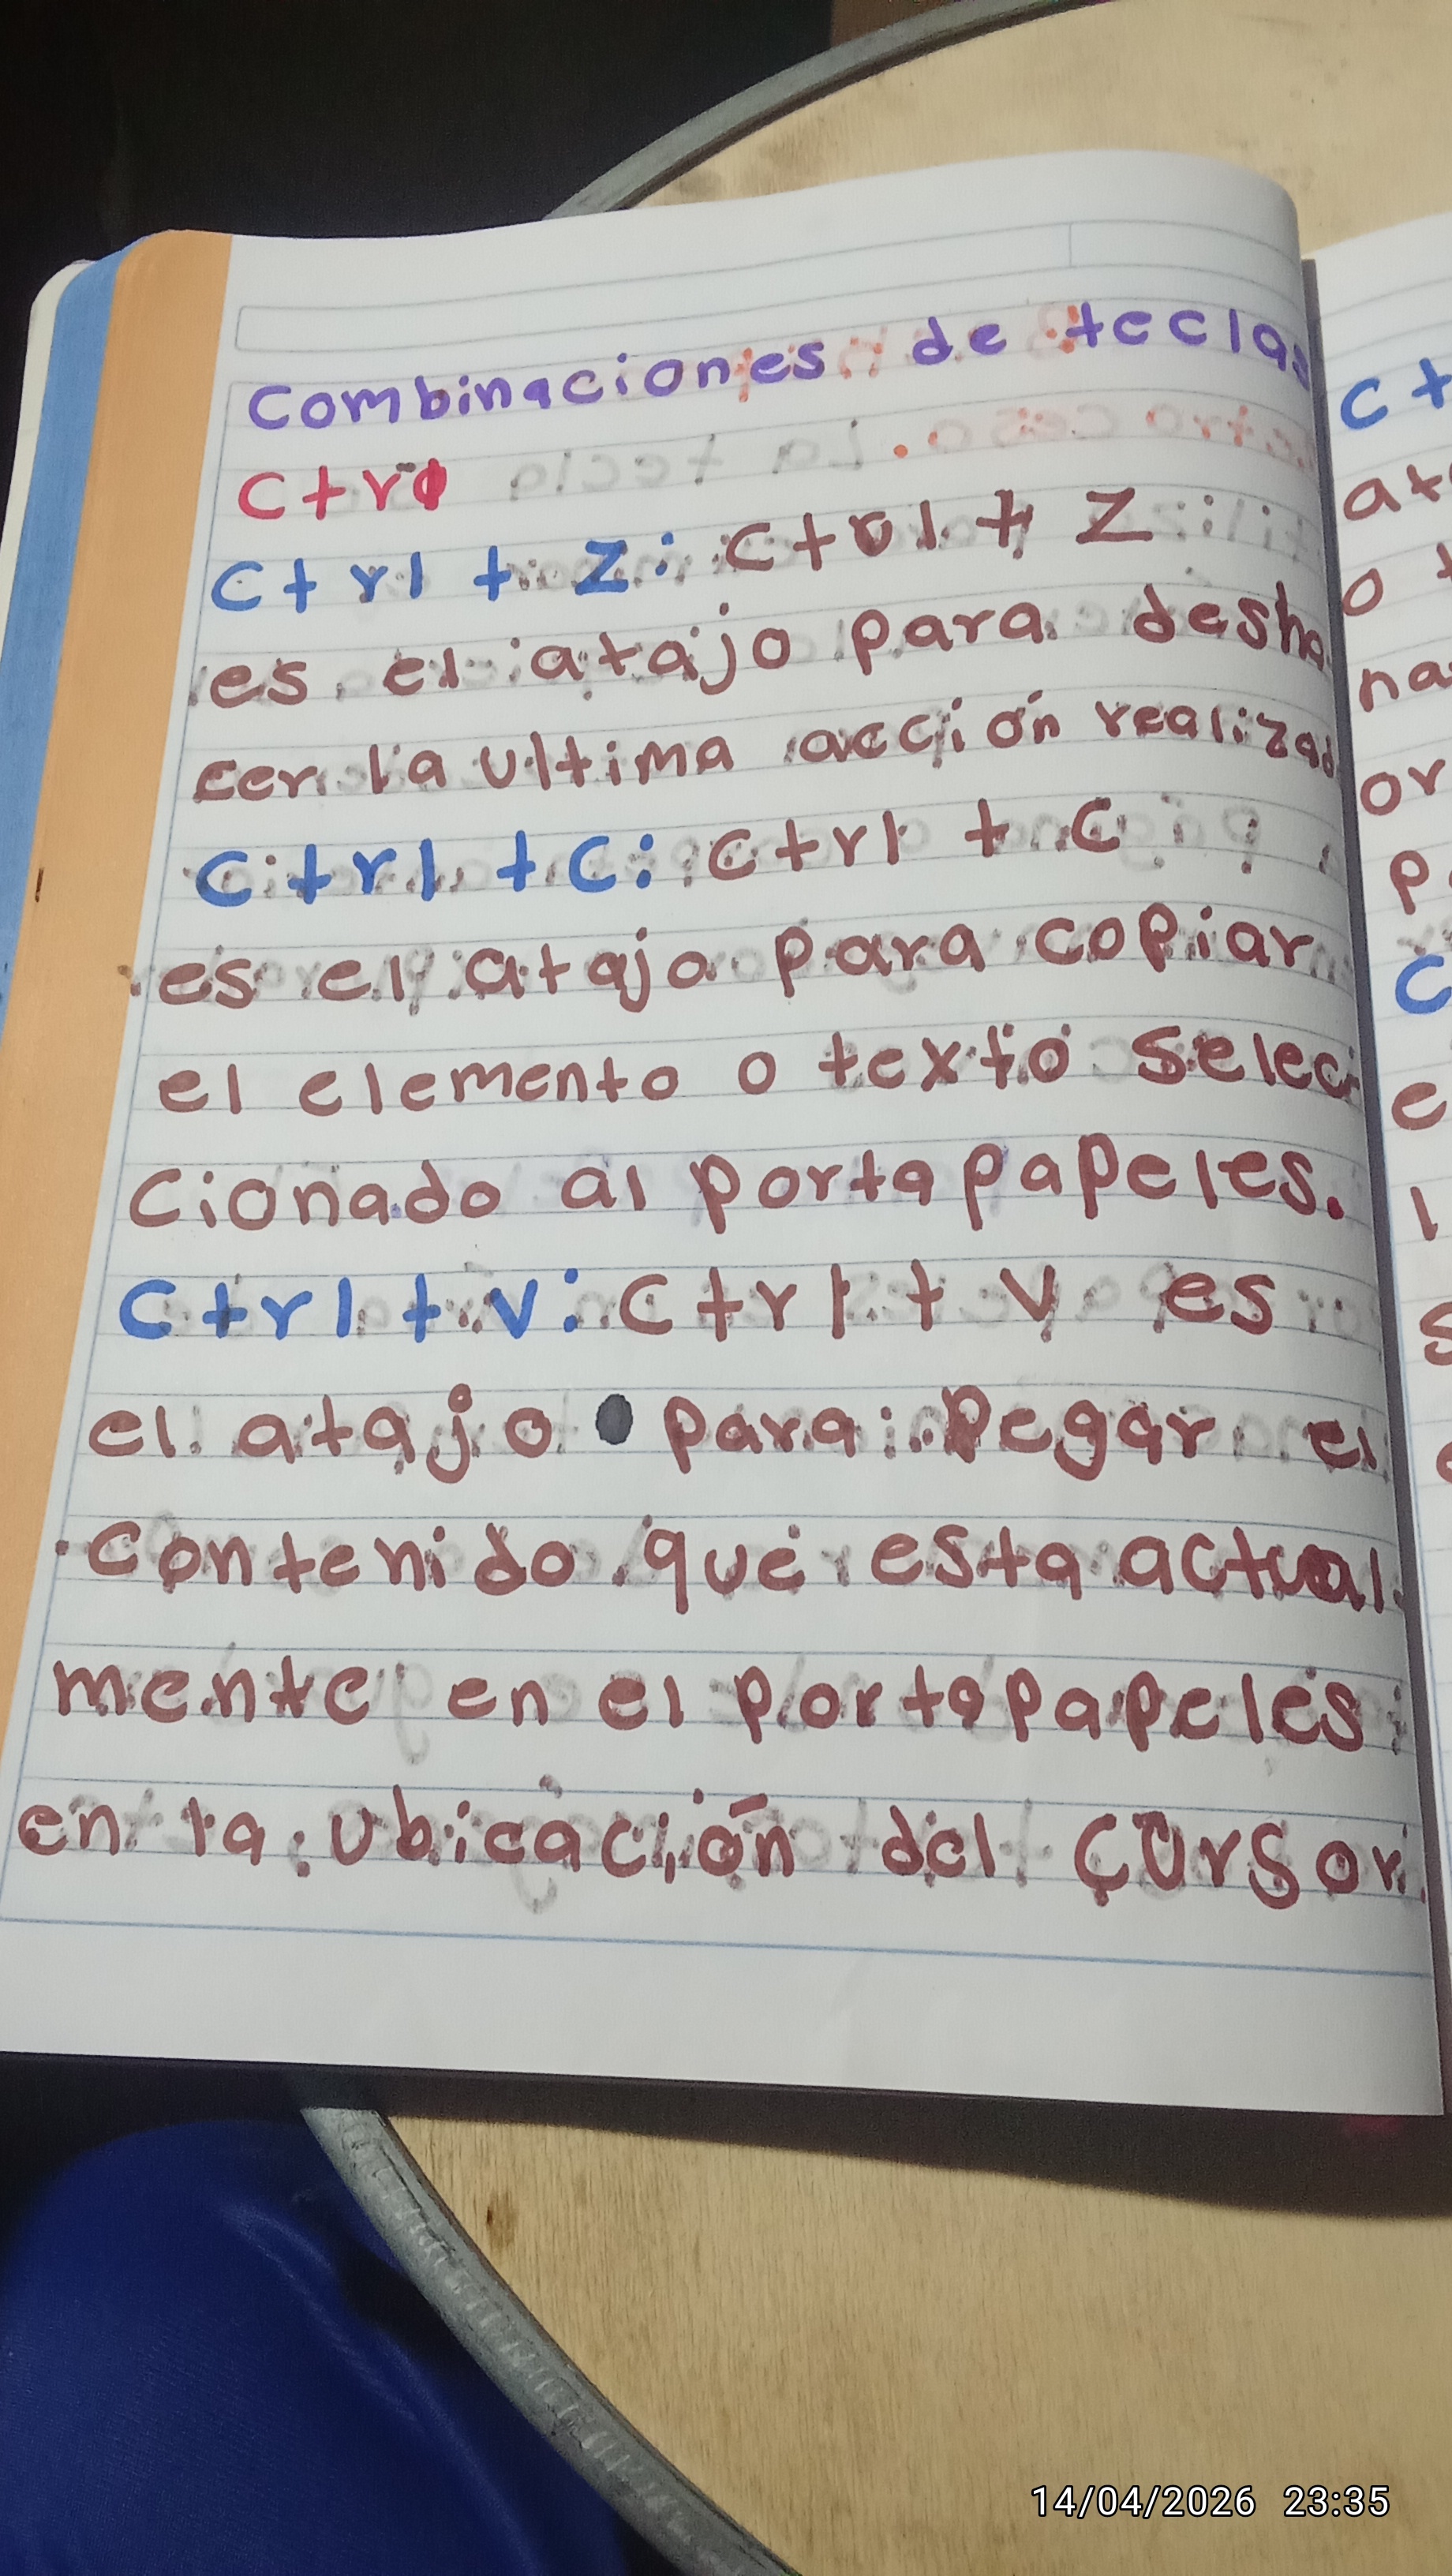 Combinaciones de teclas
Ctrl
Ctrl + Z: Ctrl + Z
es el atajo para desha
cer la ultima acción realizad
Ctrl + C: Ctrl + C
es el atajo para copiar
el elemento o texto selec
cionado al portapapeles.
Ctrl + V: Ctrl + V es
el atajo para pegar el
contenido que esta actual
mente en el portapapeles
en la ubicación del cursor.
14/04/2026 23:35